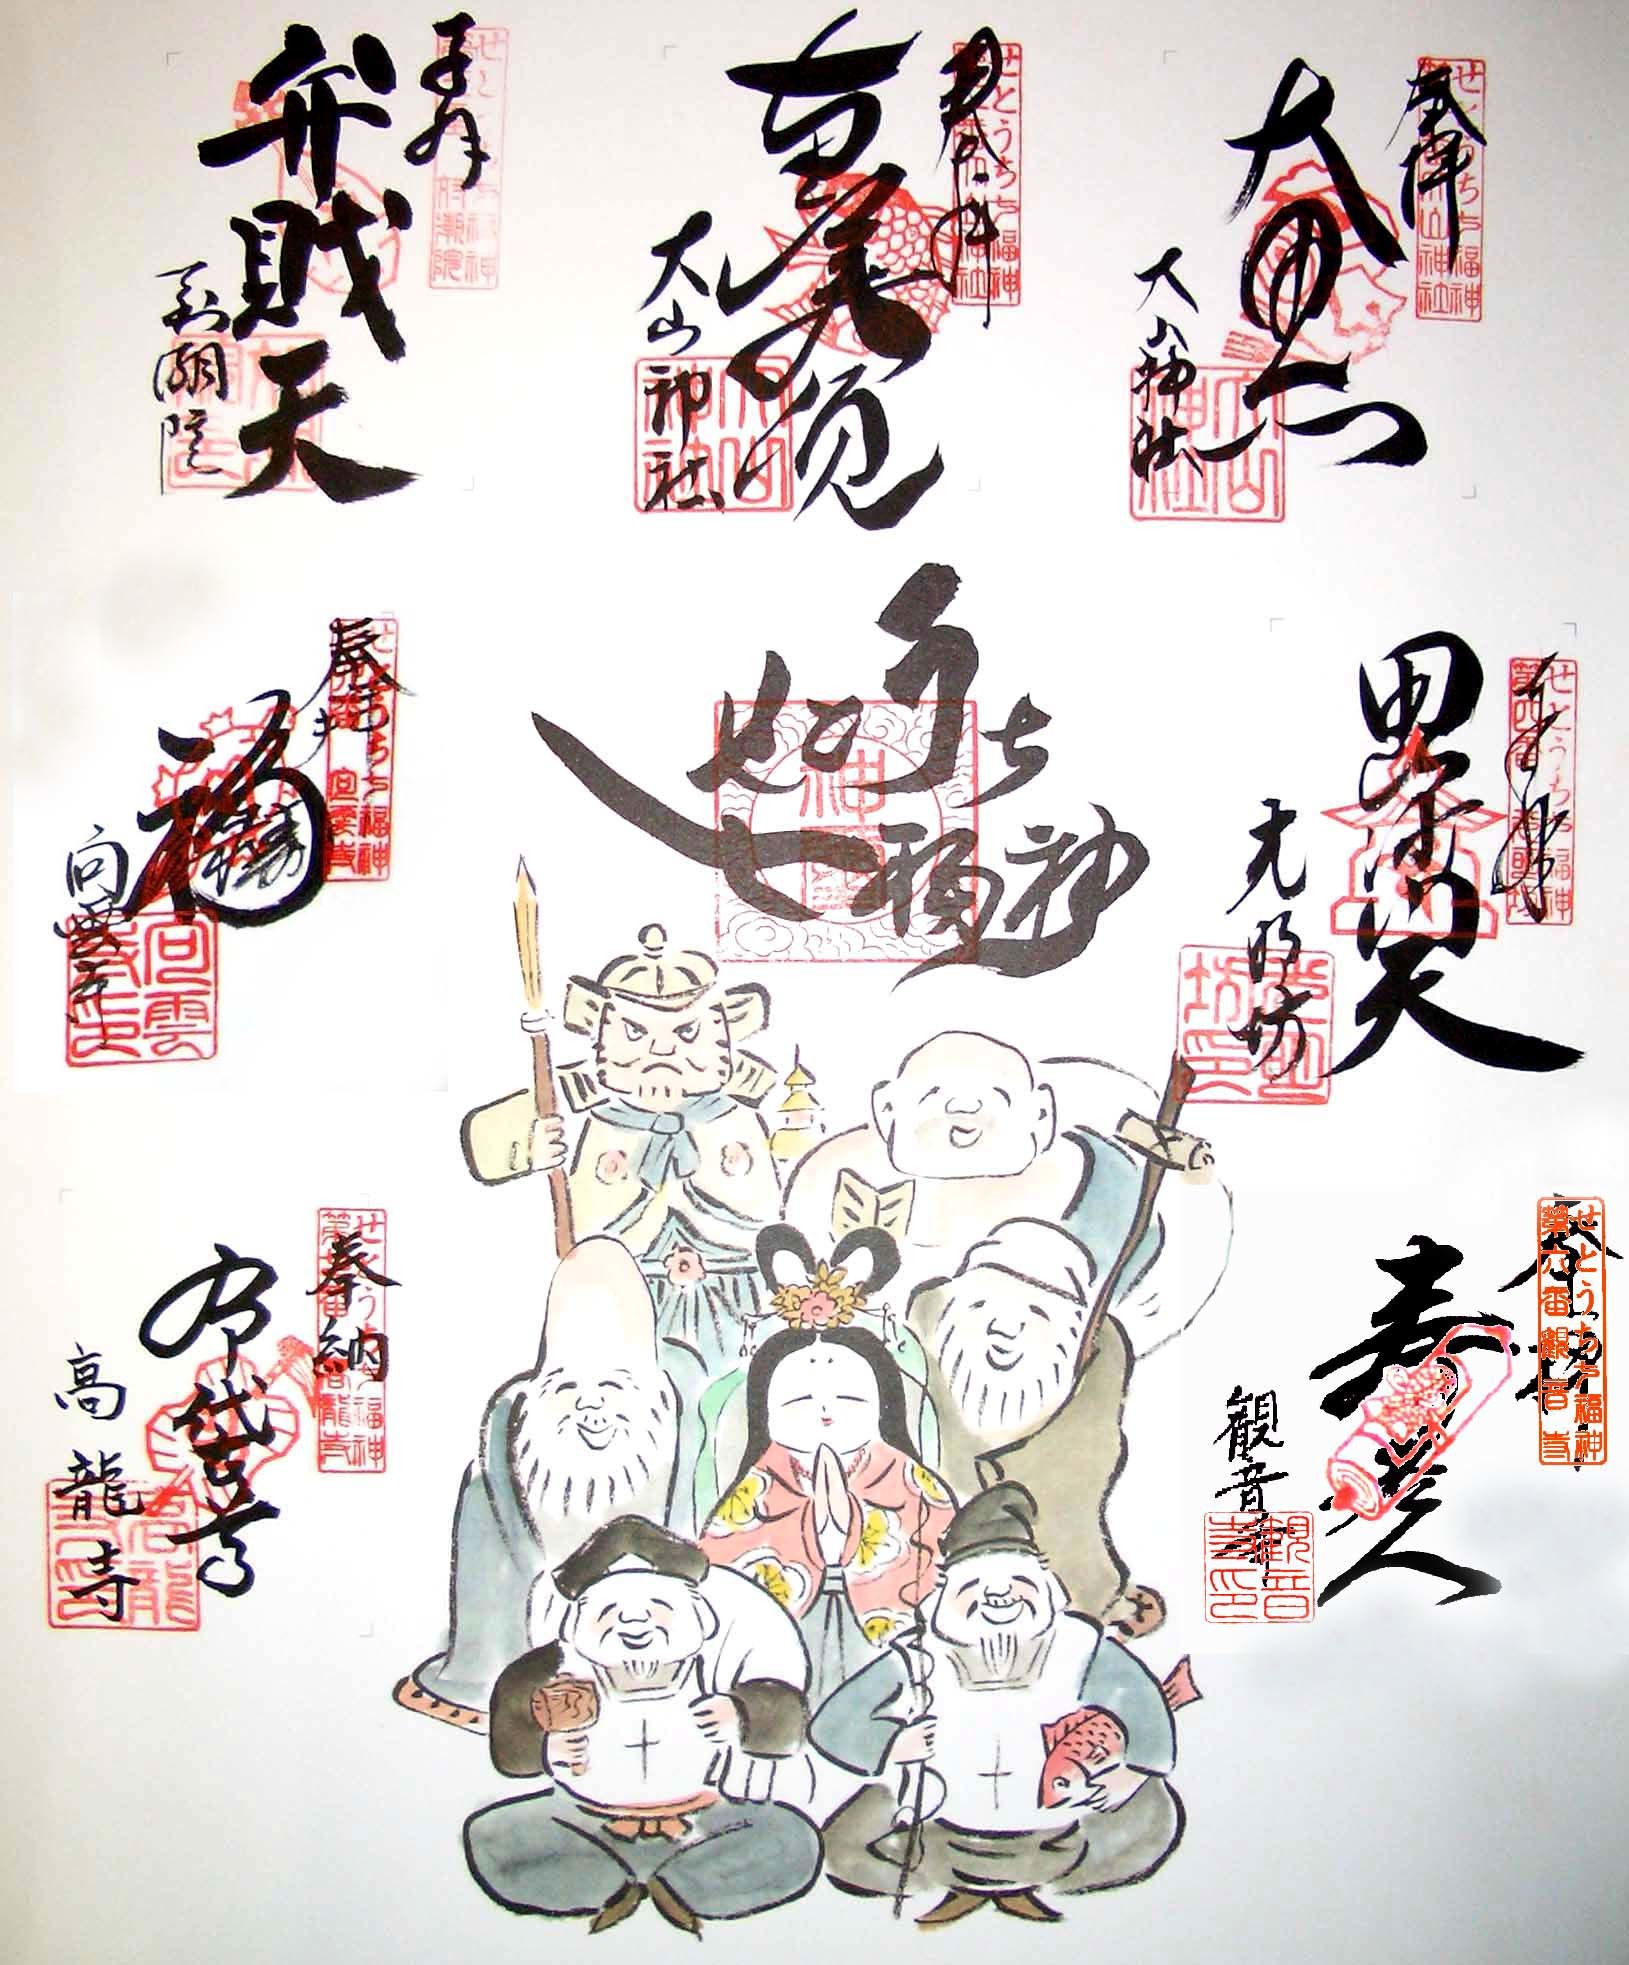 奉拝
大黒天
大山神社
せとうち七福神
大山神社
恵美須
大山神社
せとうち七福神
弁財天
対潮院
せとうち七福神
対潮院
せとうち
七福神
毘沙門天
光明坊
せとうち七福神
奉拝
福
向雲寺
せとうち七福神
向雲寺
寿老人
観音寺
せとうち七福神
第六番観音寺
観音寺印
奉納
布袋尊
高龍寺
せとうち七福神